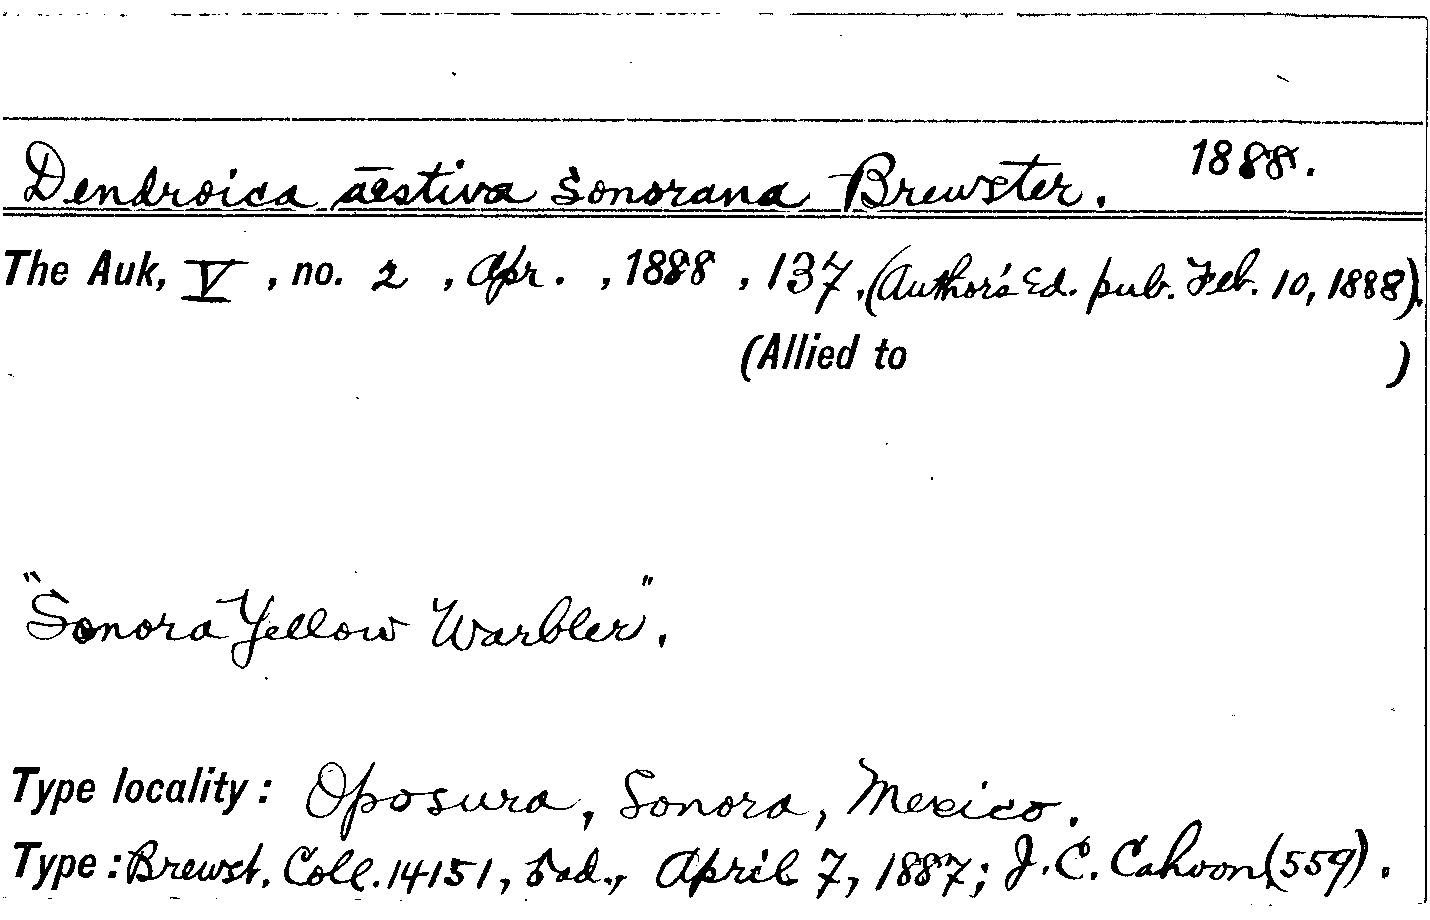 Dendroica aestiva sonorana Brewster. 1888.
The Auk, V, no. 2, Apr., 1888, 137, (Author's Ed. pub. Feb. 10, 1888).
(Allied to )
"Sonora Yellow Warbler".
Type locality: Oposura, Sonora, Mexico.
Type: Brewst. Coll. 14151, ♂ad., April 7, 1887; J. C. Cahoon (559).